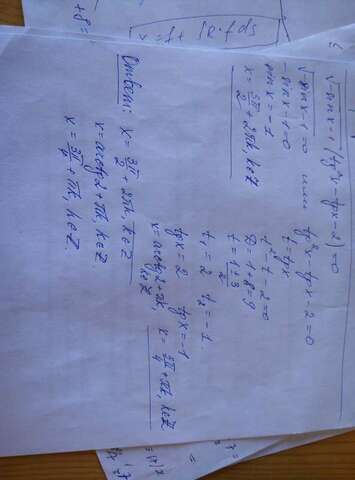 √-sinx-1 (tg²x-tgx-2)=0
√-sinx-1=0 или tg²x-tgx-2=0
-sinx-1=0
sinx=-1
x=3π/2+2πk, k∈Z
t=tgx
t²-t-2=0
D=1+8=9
t=1±3/2
t₁=2 t₂=-1
tgx=2 tgx=-1
x=arctg2+πk, k∈Z x=3π/4+πk, k∈Z
Ответ: x=3π/2+2πk, k∈Z
x=arctg2+πk, k∈Z.
x=3π/4+πk, k∈Z.